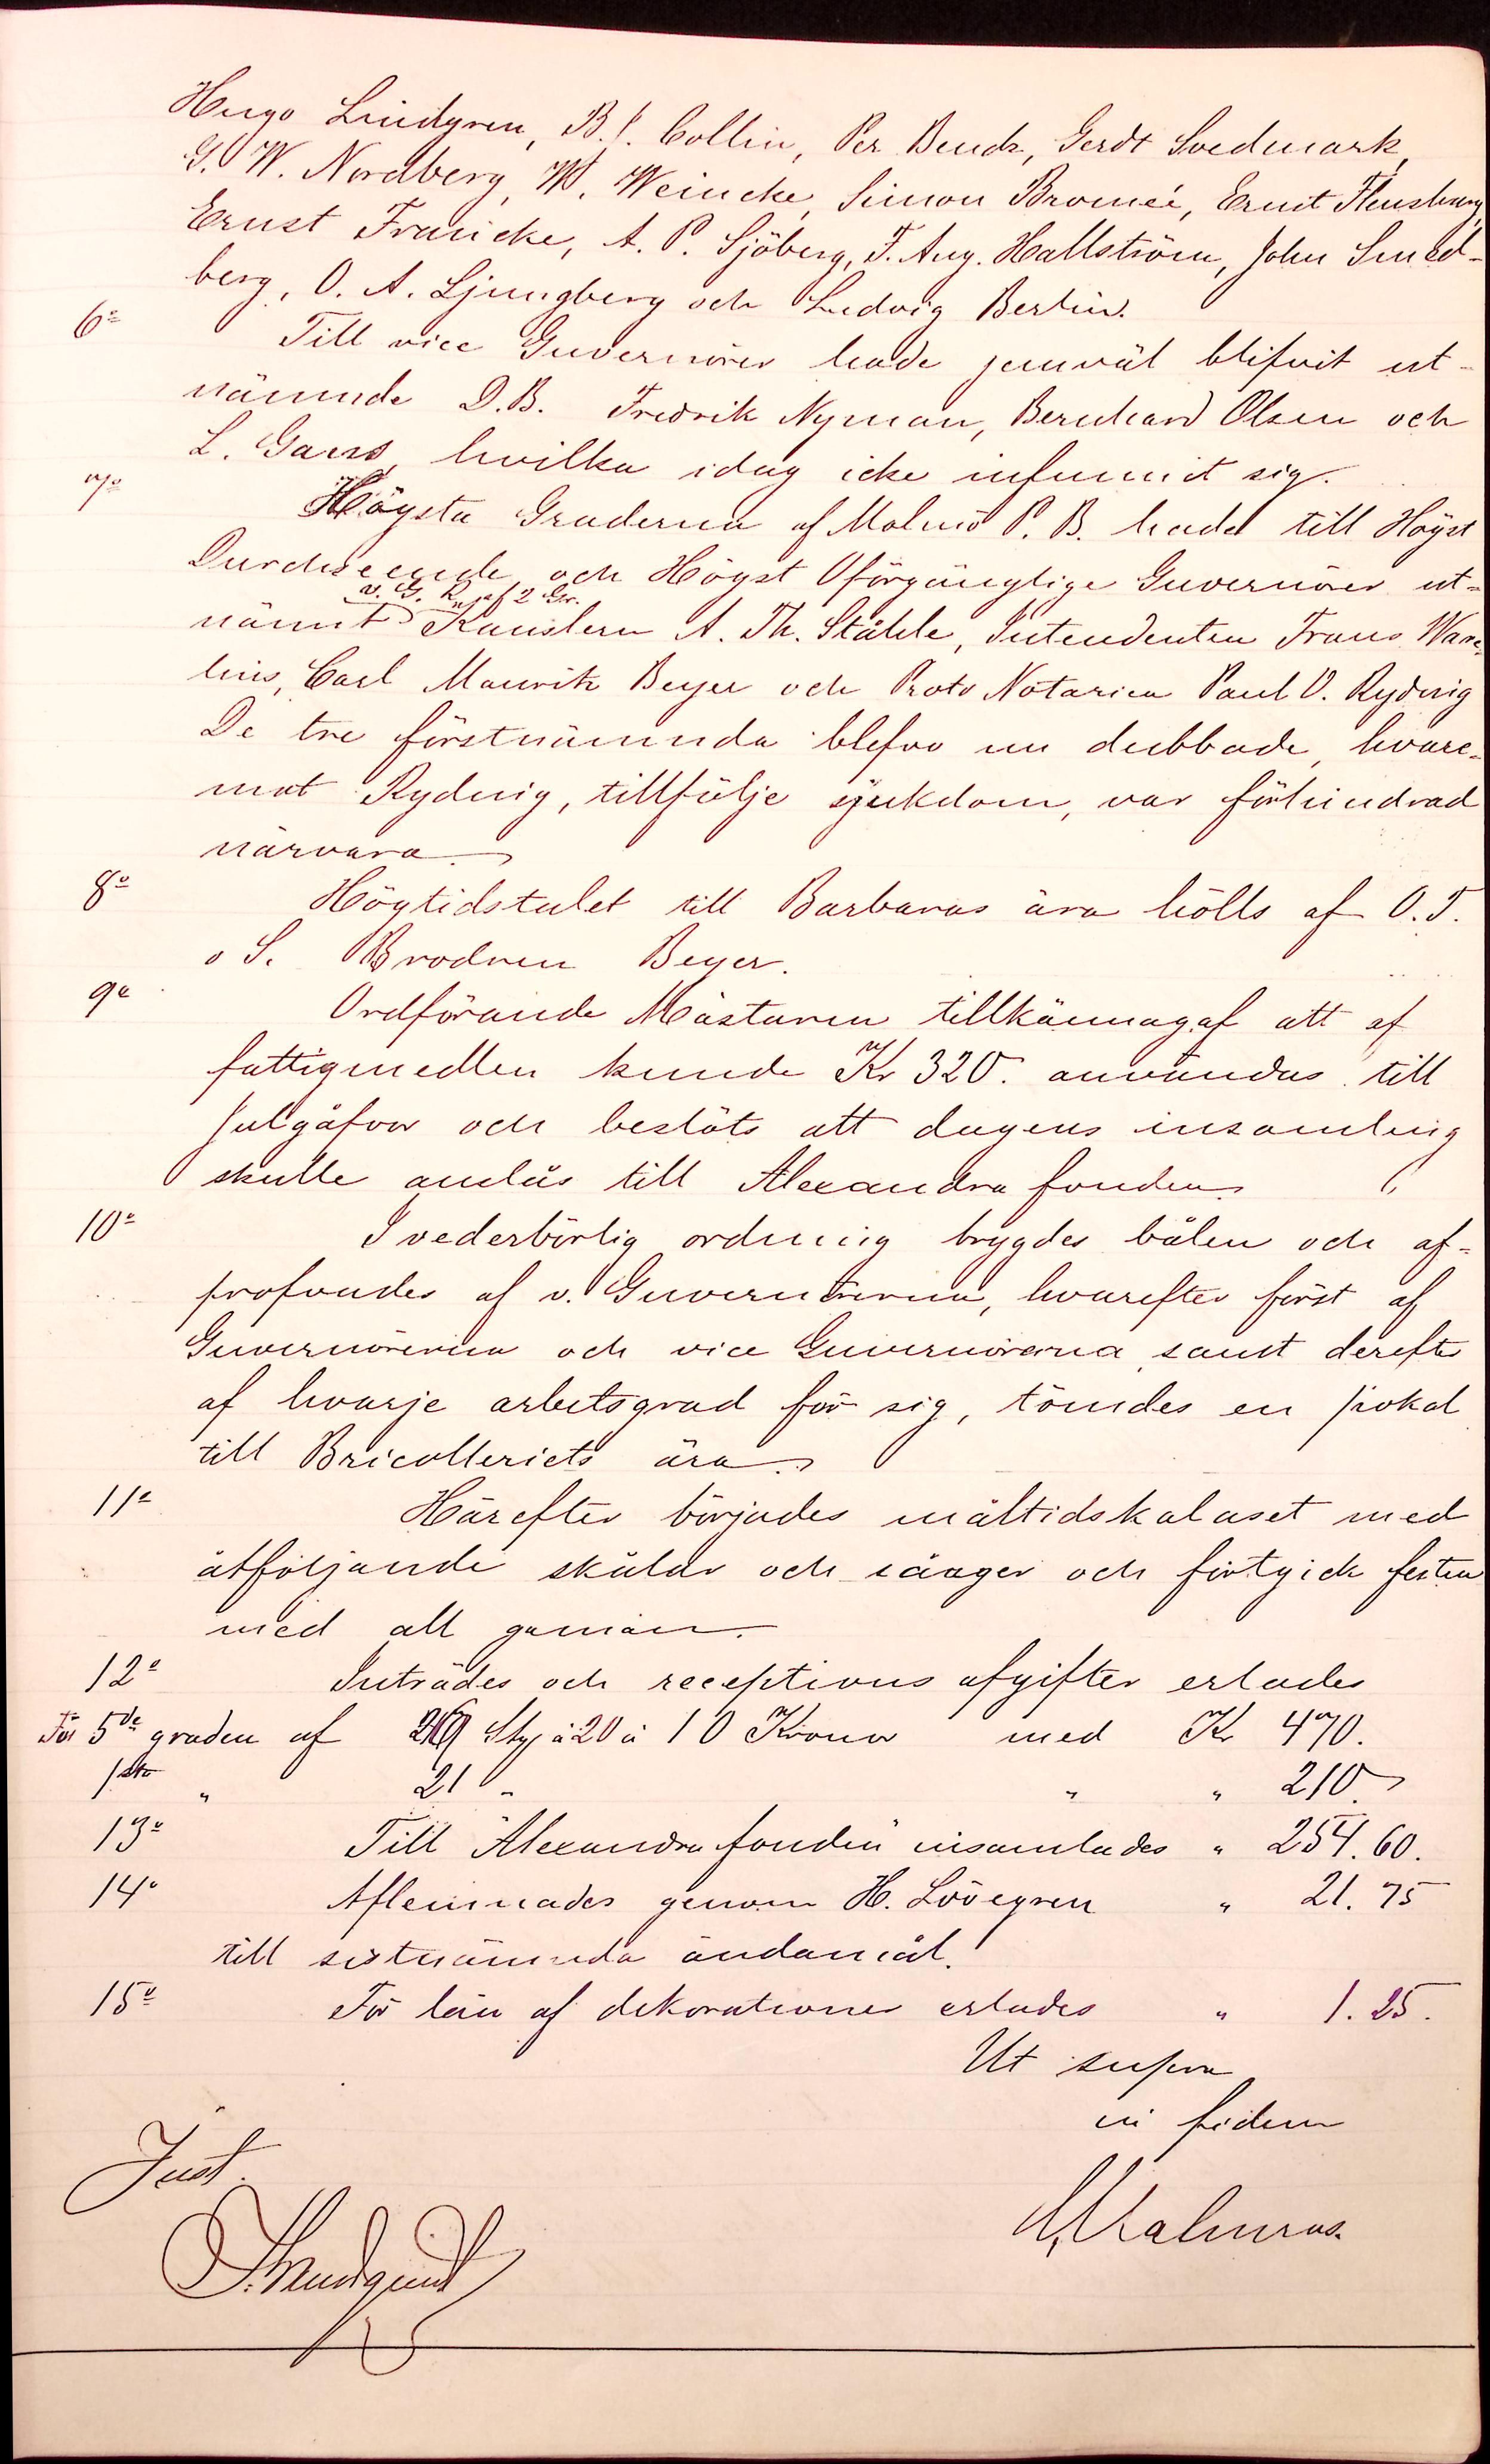 Hugo Lindgren, B. J. Collin, Per Bendz, Gerdt Svedmark,
G. W. Nordberg, W. Weincke, Simon Bromée, Ernst Flensburg,
Ernst Francke, A. P. Sjöberg, F. Aug. Hallström, John Smed-
berg, O. A. Ljungberg och Ludvig Berlin.
6o Till vice Guvernörer hade jemväl blifvit ut-
nämnde D.B. Fredrik Nyman, Bernhard Olsen och
L. Gans, hvilka idag icke infunnit sig.
7o Högsta Graderna af Malmö P. B. hade till Högst
Durchseende och Högst Oförgänglige Guvernörer ut-
v. G. R. af 2 Gr.
nämnt Kanslern A. Th. Ståhle, Intendenten Frans Ware-
lius, Carl Mauritz Beyer och Proto Notarien Paul O. Ryding
De tre förstnämnda blefvo nu dubbade, hvare-
mot Ryding, tillfölje sjukdom, var förhindrad
närvara.
8o Högtidstalet till Barbaras ära hölls af O.T.
o S. Brodren Beyer.
9o Ordförande Mästaren tillkännagaf att af
fattigmedlen kunde Kr 320. användas till
julgåfvor och beslöts att dagens insamling
skulle anslås till Alexandra fonden.
10o I vederbörlig ordning bryggdes bålen och af-
profvades af v. Guvernörerna, hvarefter först af
Guvernörerna och vice Guvernörerna samt derefter
af hvarje arbetsgrad för sig, tömdes en pokal
till Bricolleriets ära.
11o Härefter börjades måltidskalaset med
åtföljande skålar och sånger och förtgick festen
med allt gamman.
12o Inträdes och receptions afgifter erlades
För 5de graden af 26 Stg à 20 à 10 Kronor med Kr 470.
1sta " 21 " " " 210.
13o Till "Alexandra fonden" insamlades " 254. 60.
14o Aflemnades genom H. Lövegren " 21. 75
till sistnämnda ändamål.
15o För lån af dekorationer erlades " 1. 25.
Ut supra
in fidem
Just.